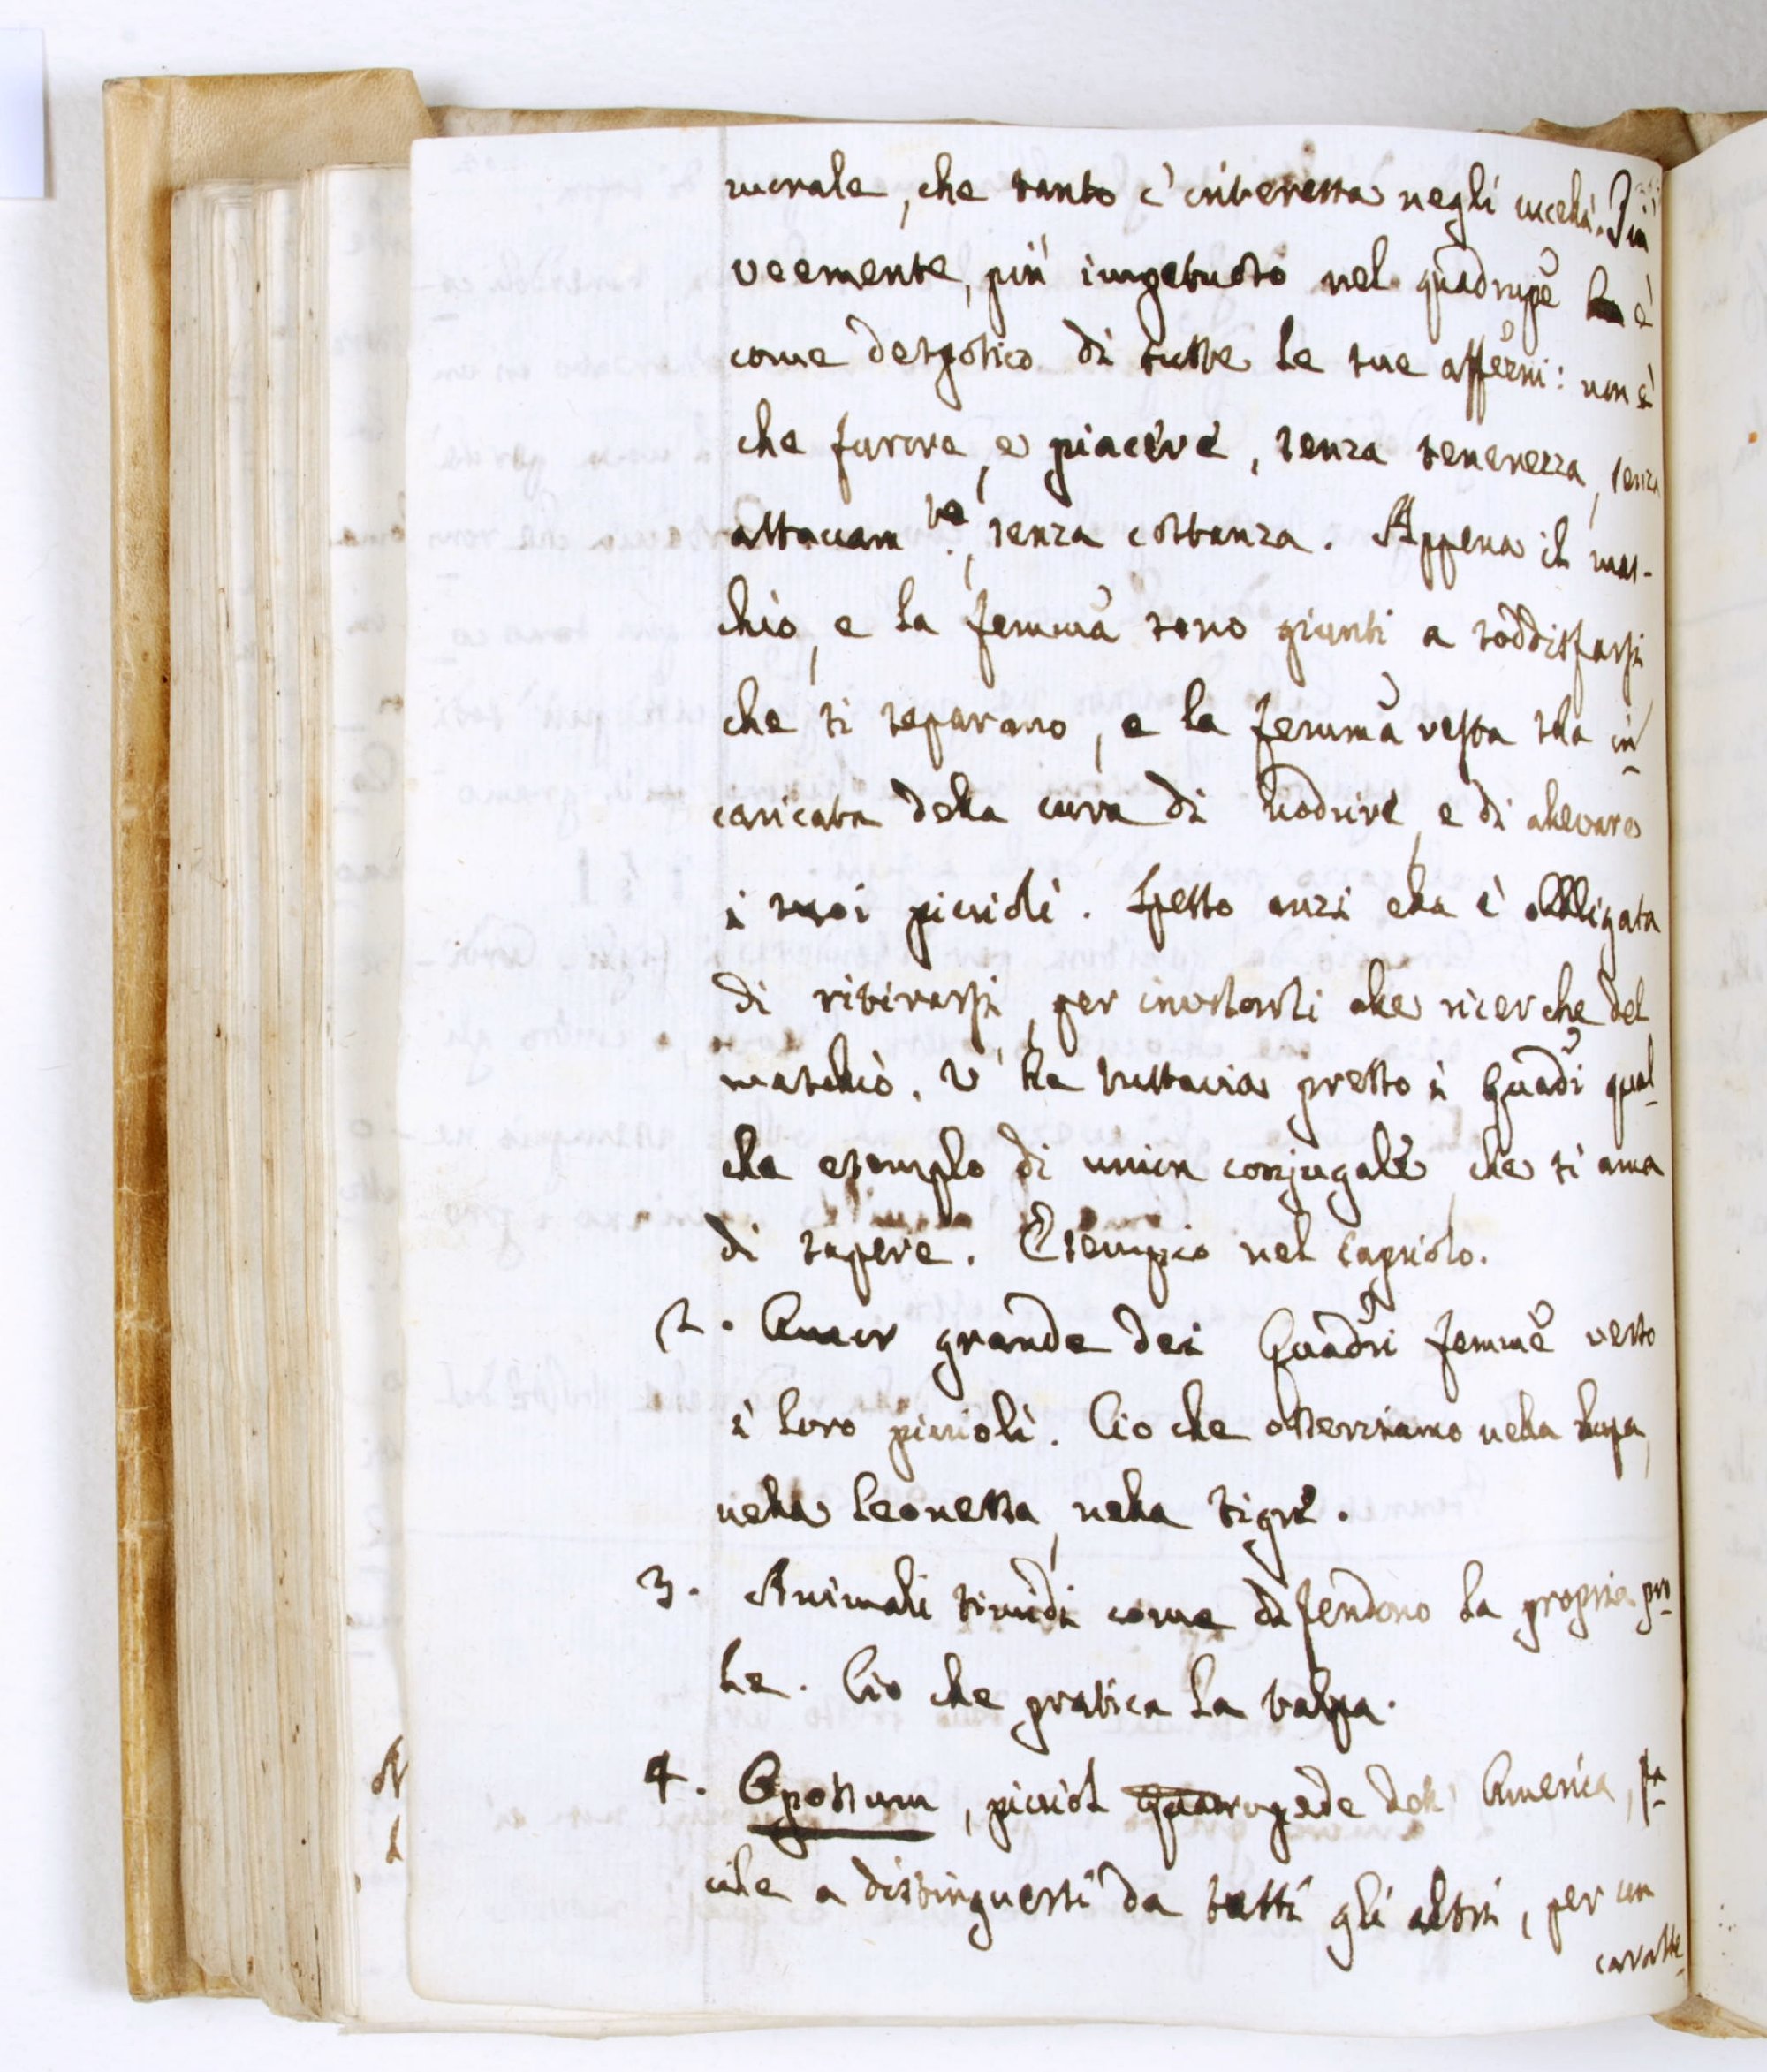 morale, che tanto c'interessa negli uccelli. Più
veemente, più impetuoso nel quadrupe è
come despotico di tutte le sue affezni: non è
che furore, e piacere, senza tenerezza, senza
attaccam.te, senza costanza. Appena il mas-
chio, e la femma sono giunti a soddisfarsi
che si separano, e la femma resta sola in
caricata della cura di nodrire, e di allevare
i suoi piccioli. Spesso anzi ella è obbligata
di ritirarsi, per involarsi alle ricerche del
maschio. V'ha tuttavia presso i Quadi qual
che esempio di union conjugale che si ama
di sapere. Esempio nel capriolo.
2. Amor grande dei Quadri femme verso
i loro piccioli. Ciò che osserviamo nella lupa,
nella leonessa, nella tigre.
3. Animali timidi come difendono la propria pro
le. Ciò che pratica la talpa.
4. Opossum, picciol quadrupede dell'America, fa
cile a distinguersi da tutti gli altri, per un
caratte